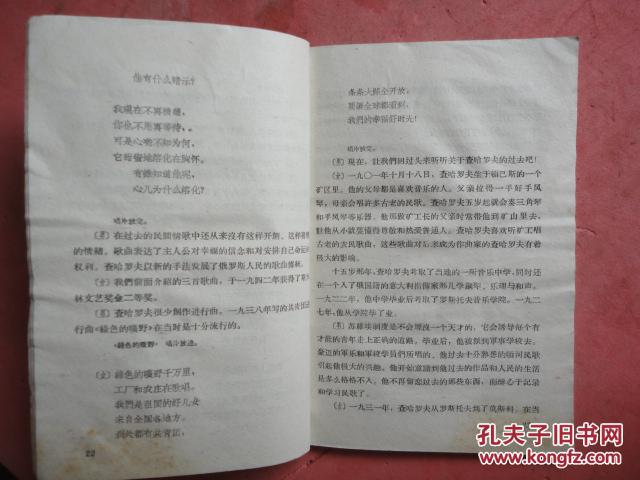 他有什么暗示?
我现在不再猜想,
你也不用再等待,
可是心呀不知为何,
它暗暗地溶化在胸怀。
有谁知道他呢,
心儿为什么溶化?
唱片放完。
(男)在过去的民间情歌中还从来没有这样开朗、这样
的情绪。歌曲表达了主人公对幸福的信念和对安排自己命运
权利。查哈罗夫以新的手法发展了俄罗斯人民的歌曲
(女)我们前面介绍的三首歌曲,于一九四二年获得了斯
林文艺奖金二等奖。
(男)查哈罗夫很少创作进行曲。一九三八年写的
行曲《绿色的原野》在当时是十分流行的。
《绿色的原野》 唱片放送。
(女)绿色的原野千万里,
工厂和农庄在歌唱。
我们是祖国的好儿女
来自全国各地方。
到处都有共青团,
22
条条大路全开放,
要让全球都看到,
我们的幸福好时光!
唱片放完。
(男)现在,让我们回过头来听听关于查哈罗夫的过去吧!
(女)一九〇一年十月十八日,查哈罗夫生在顿巴斯的一个
矿区里。他的父母都是喜欢音乐的人。父亲拉得一手好手风
琴,母亲会唱许多古老的民歌。查哈罗夫五岁起就会奏三角
琴和风琴等乐器。他那做矿工长的父亲时常带他到矿山里去,
让他从小就莫懂得尊敬和热爱劳动。查哈罗夫喜欢听矿工唱
古老的农民歌曲,这些歌曲对后来成为作曲家的查哈罗夫有着
极大的影响。
十五岁那年,查哈罗夫考取了当地的一所音乐中学,同时还
在一个入了俄国籍的意大利指挥师那儿学钢琴、乐理与和声。
一九二二年,他中学毕业后考取了罗斯托夫音乐学院。一九二
七年,他从学院毕了业。
(男)苏维埃制度是不会埋没一个天才的,它会诱导每个有
才能的青年走上正确的道路。毕业后,他就到军事学校去。
豪迈的军乐和军校学员们所唱的、他过去十分熟悉的顿河民歌
引起他极大的兴趣。他开始意识到他过去的作品和人民的生活
是多么格格不入。他不再留恋过去的那些东西,而醉心于记录
和学习民歌了。
(女)一九三一年,查哈罗夫从罗斯托夫到了莫斯科。在当
孔夫子旧书网
www.kongfz.com